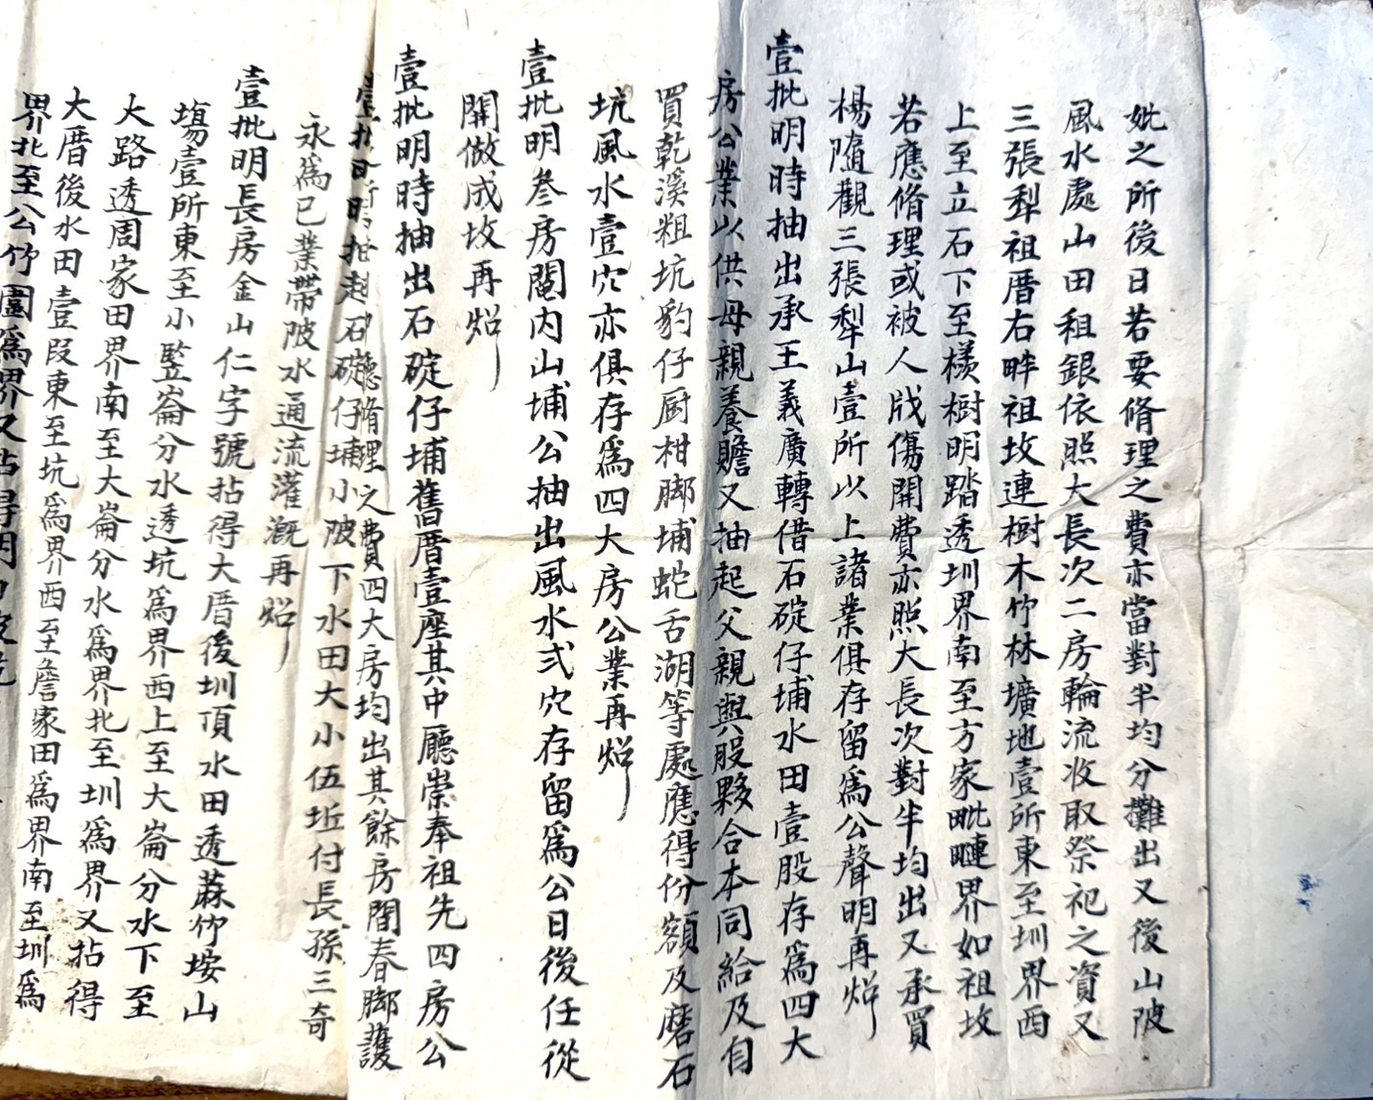 妣之所後日若要脩理之費亦當對半均分攤出又後山陂
風水處山田租銀依照大長次二房輪流收取祭祀之資又
三張犁祖厝右畔祖坟連樹木竹林壙地壹所東至圳界西
上至立石下至檨樹明踏透圳界南至方家毗嗹界如祖坟
若應脩理或被人戕傷開費亦照大長次對半均出又承買
楊隨觀三張犁山壹所以上諸業俱存留為公聲明再炤
壹批明時抽出承王義廣轉借石碇仔埔水田壹股存為四大
房公業以供母親養贍又抽起父親與股夥合本同給及自
買乾溪粗坑豹仔厨柑脚埔蛇舌湖等處應得份額及磨石
坑風水壹穴亦俱存為四大房公業再炤
壹批明叁房鬮內山埔公抽出風水弍穴存留為公日後任從
開做成坟再炤
壹批明時抽出石碇仔埔舊厝壹座其中廳崇奉祖先四房公
聽脩理之費四大房均出其餘房間春脚護
壹批明時抽起石碇仔埔小陂下水田大小伍坵付長孫三奇
永為己業帶陂水通流灌溉再炤
壹批明長房金山仁字號拈得大厝後圳頂水田透蔴竹垵山
塲壹所東至小監崙分水透坑為界西上至大崙分水下至
大路透周家田界南至大崙分水為界北至圳為界又拈得
大厝後水田壹段東至坑為界西至詹家田為界南至圳為
界北至公竹圍為界又拈得